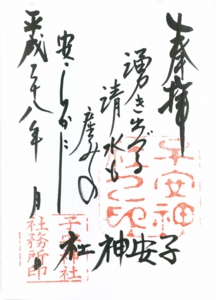 奉拝
湧き出づる
清水も
産みの
安らかに
平成二十八年 月 日
子安神社
子安神社
社務所印